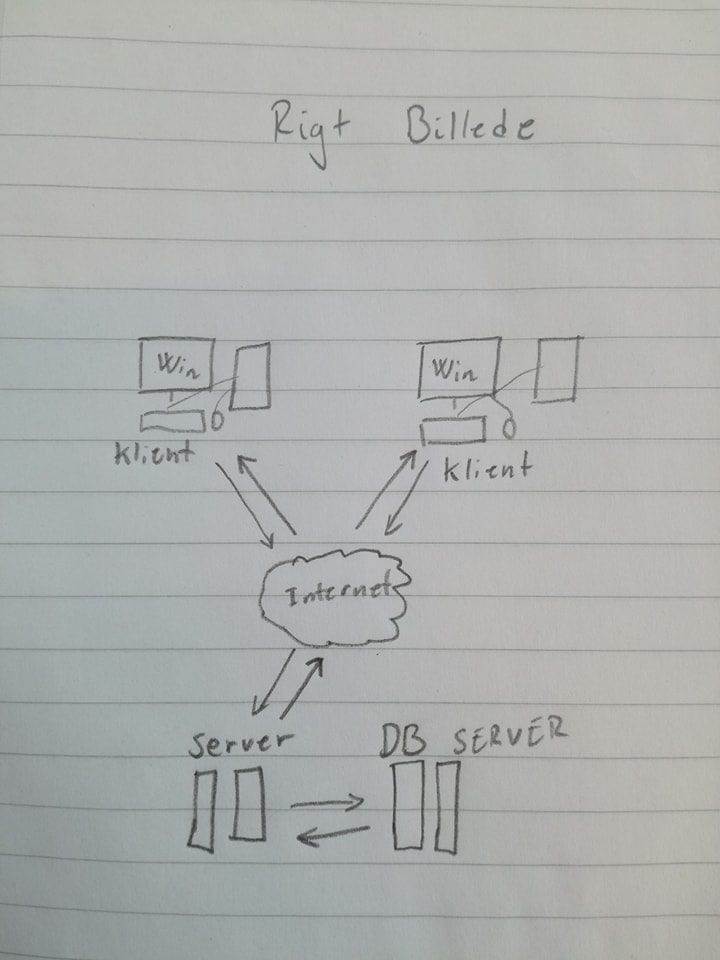 Rigt Billede
Win
Win
Klient
Klient
Internet
Server
DB SERVER